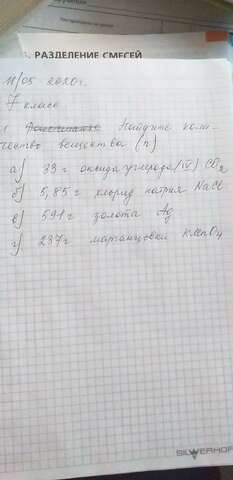 РАЗДЕЛЕНИЕ СМЕСЕЙ
11/05-2020г.
7 класс
Найдите коли-
чество вещества (n)
а) 33г оксида углерода (IV) CO2
б) 5,85г хлорид натрия NaCl
в) 591г золота Ag
г) 237г марганцовки KMnO4
SILWERHOF